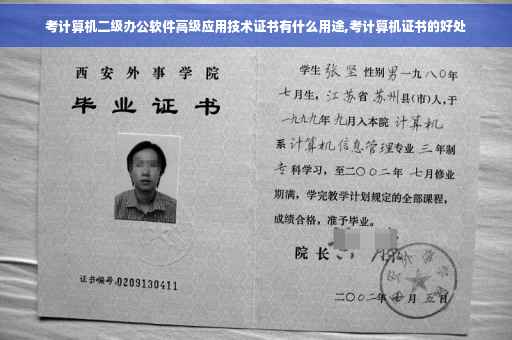 考计算机二级办公软件高级应用技术证书有什么用途,考计算机证书的好处
西安外事学院
毕业证书
证书编号:0209130411
学生 张坚 性别男一九八〇年
七月生，江苏省 苏州县(市)人,于
一九九九年 九月入本院 计算机
系计算机信息管理专业 三 年制
专科学习，至二〇〇二年 七月修业
期满，学完教学计划规定的全部课程，
成绩合格，准予毕业。
院长
二〇〇二年 月 五日